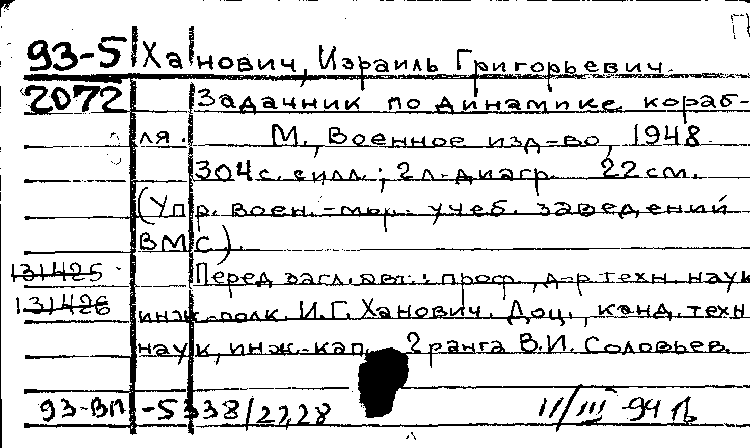 П
93-5 Ханович, Израиль Григорьевич.
2072 Задачник по динамике кораб-
ля. М., Военное изд-во, 1948
304 с. с илл.; 2 л. диагр. 22 см.
(Упр. воен.-мор. учеб. заведений
ВМС).
131425 Перед загл. авт.: проф., д-р техн. наук
131426 инж.-полк. И.Г. Ханович. Доц., канд. техн
наук, инж.-кап. 2 ранга В.И. Соловьев.
93-ВП-5338/27,28 II/III-94